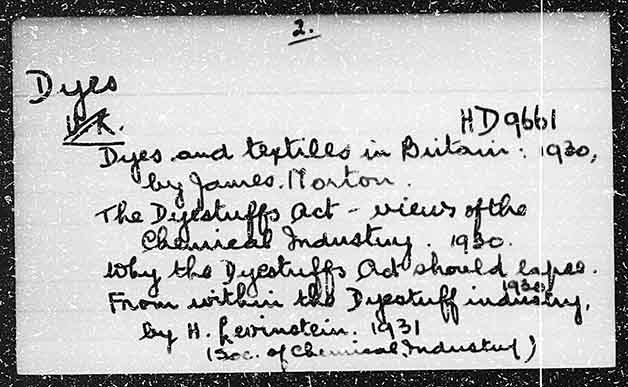 2.
Dyes
U.K.
HD9661
Dyes and textiles in Britain. 1930,
by James Morton.
The Dyestuffs Act - views of the
Chemical Industry. 1930.
Why the Dyestuffs Act should lapse.
1930
From within the Dyestuff industry,
by H. Levinstein. 1931
(Soc. of Chemical Industry)